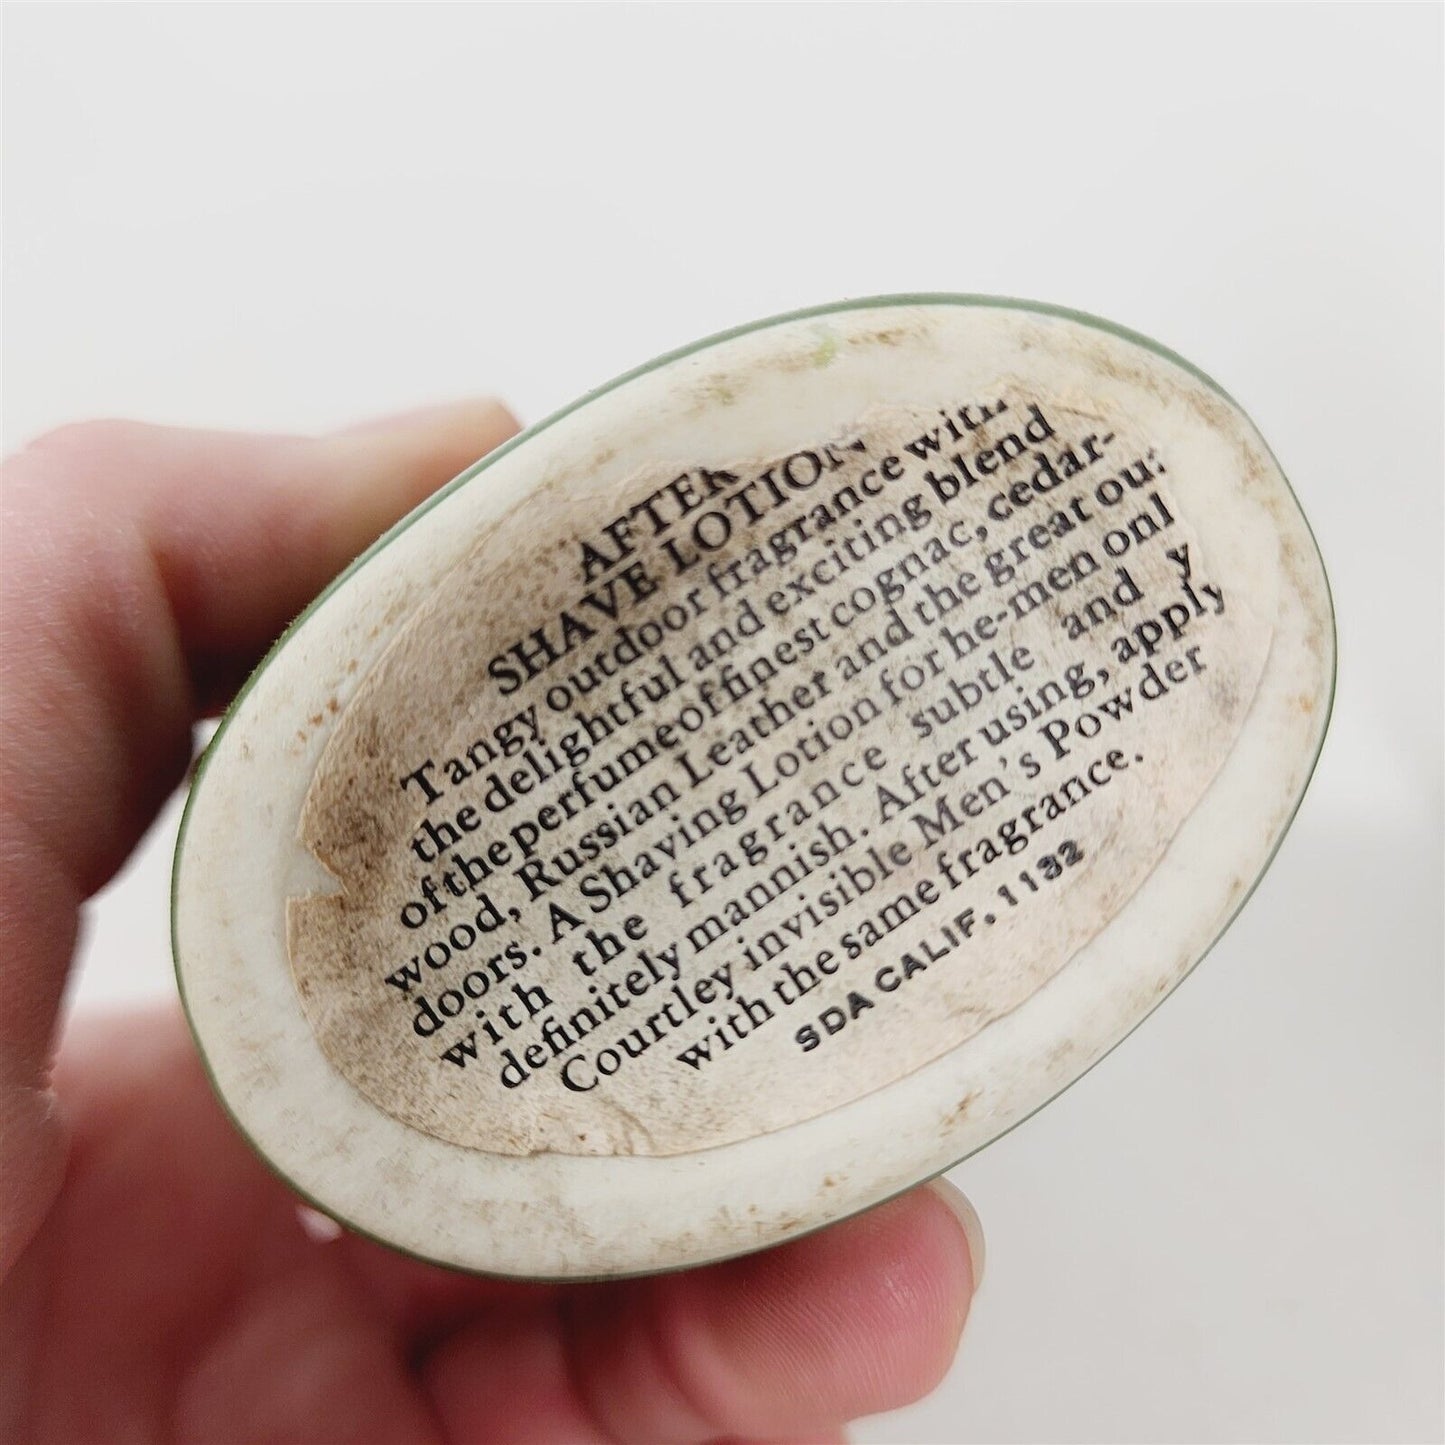 AFTER
SHAVE LOTION
Tangy outdoor fragrance with
the delightful and exciting blend
of the perfume of finest cognac, cedar-
wood, Russian Leather and the great out
doors. A Shaving Lotion for he-men onl
with the fragrance subtle and y
definitely mannish. After using, apply
Courtley invisible Men's Powder
with the same fragrance.
SDA CALIF. 1132